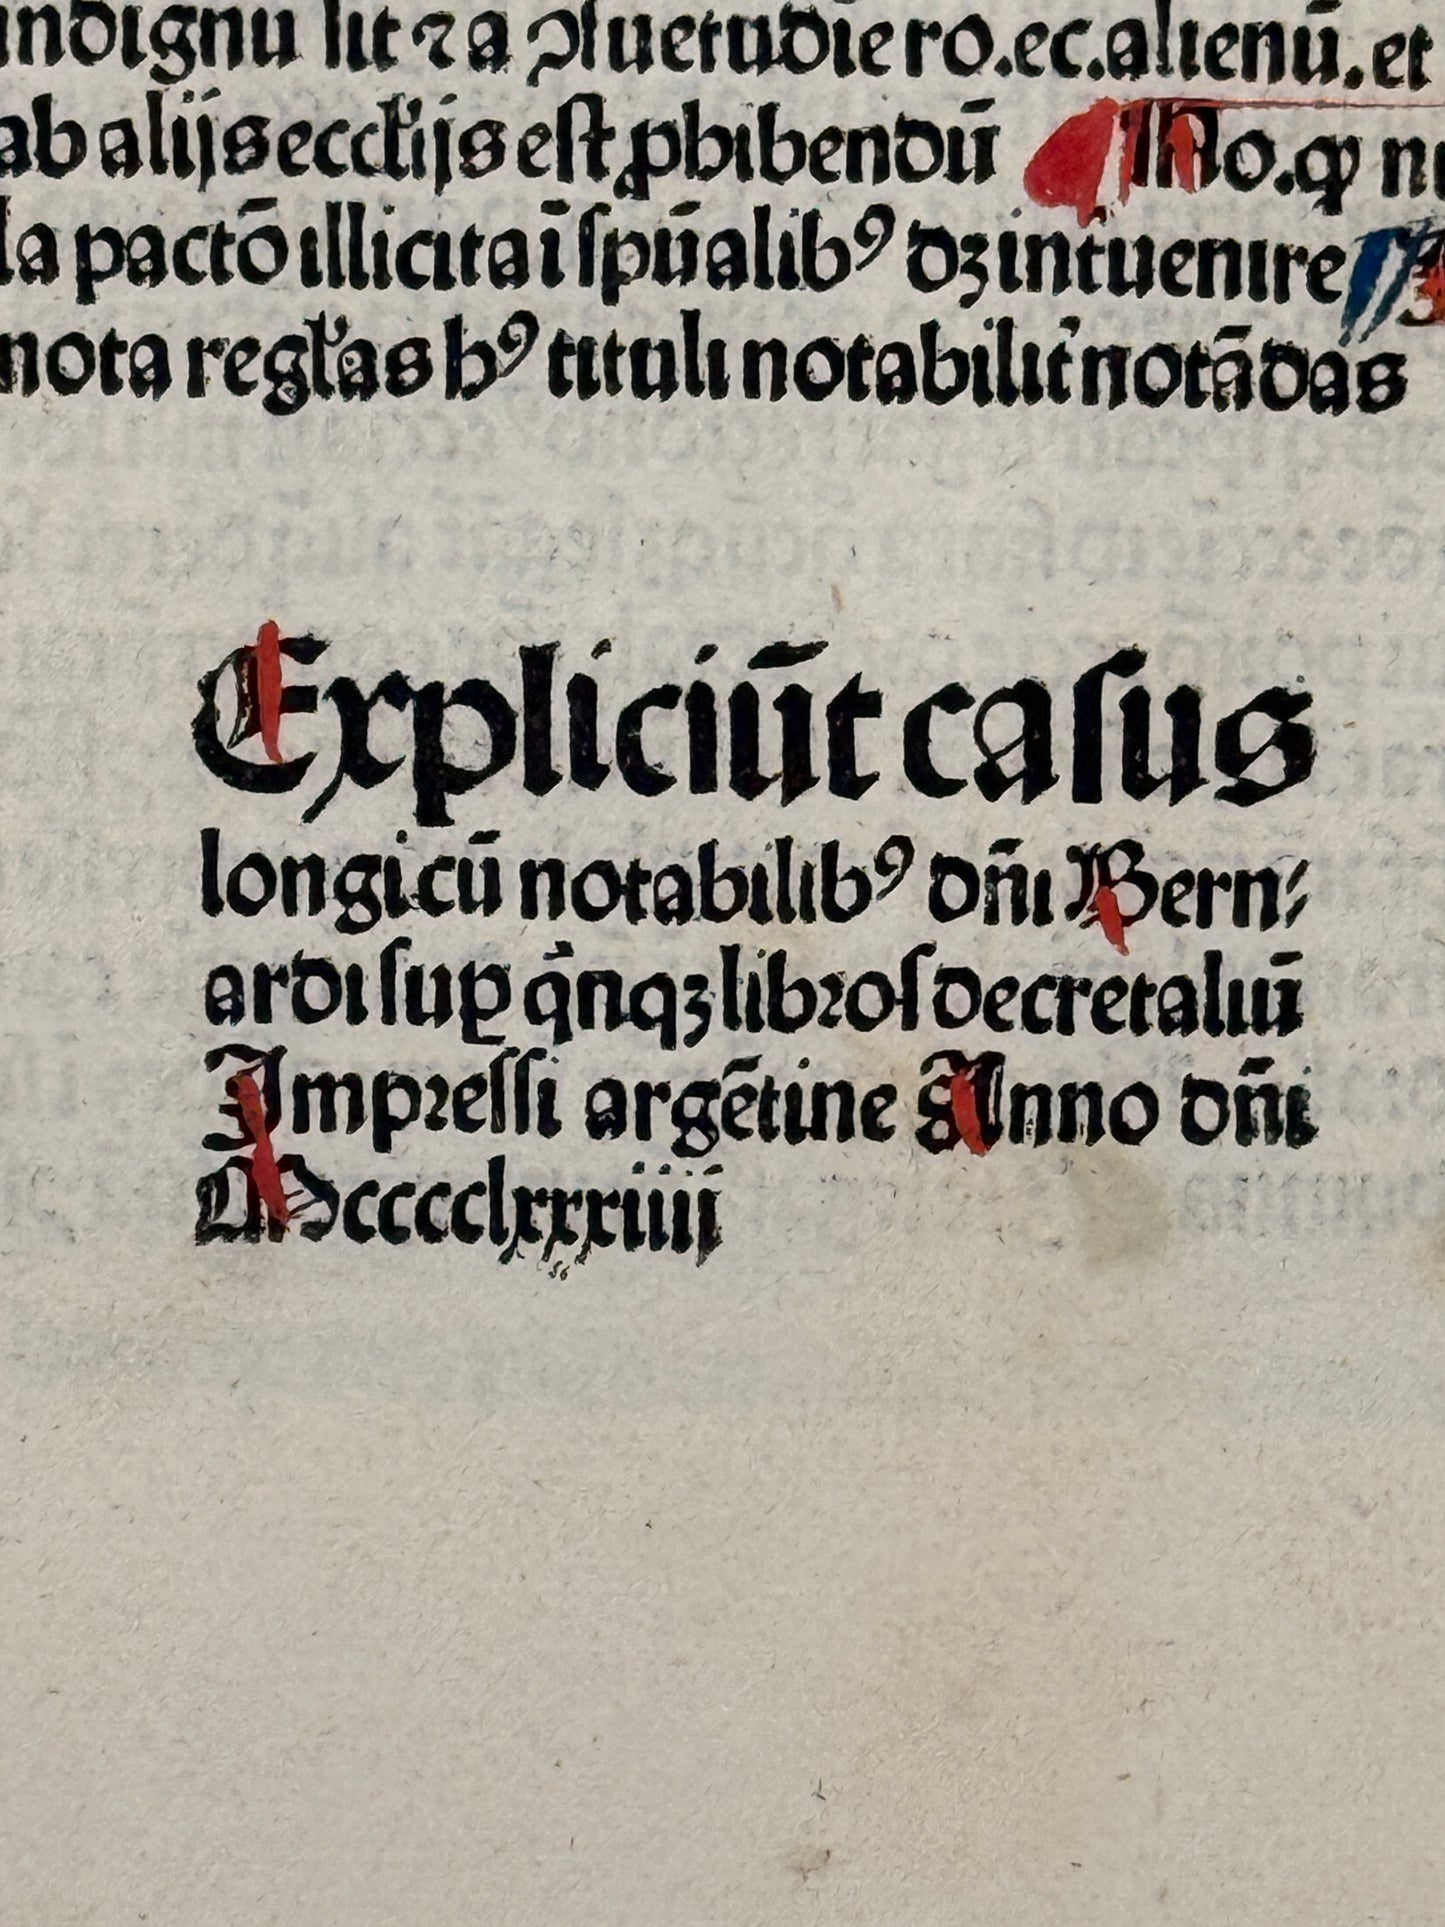 indignū sit ⁊ a ꝯsuetudīe ro.ec.alienū.et
ab alijs eccl'ijs est ꝓhibendū No.ꝙ nu
la pactō illicita ī spūalibꝰ dꝫ int̓uenire
nota regl'as hꝰ tituli notabilit̓ notādas
Expliciūt casus
longi cū notabilibꝰ dn̄i Bern⸗
ardi suꝑ q̇nqꝫ libꝛos decretaliū
Impꝛessi argētine Anno dn̄i
Mcccclxxxiiij